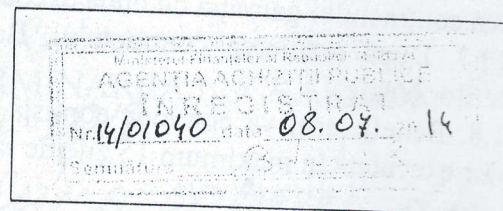 Ministerul Finanțelor al Republicii Moldova
AGENȚIA ACHIZIȚII PUBLICE
ÎNREGISTRAT
Nr. 14/01040 data 08.07. 2014
Semnătura